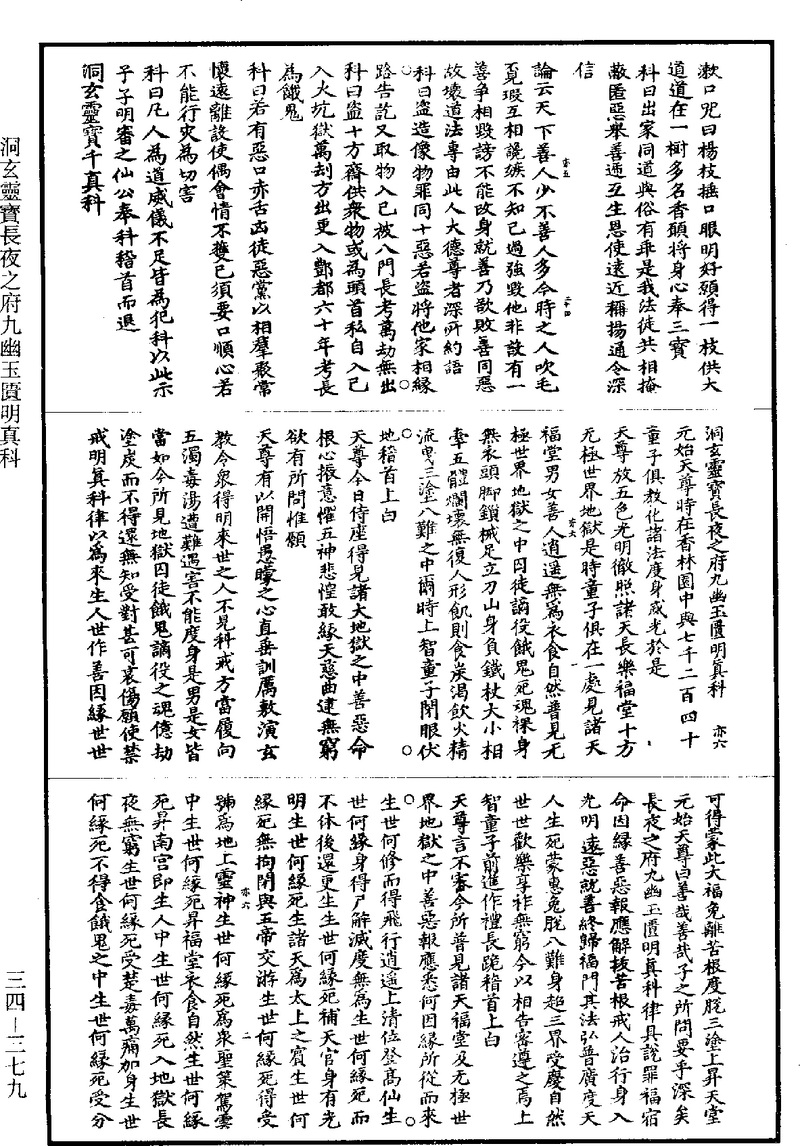 漱口咒曰楊枝插口眼明好頭得一枝供大
道道在一樹多名香願將身心奉三寳
科曰出家同道與俗有乖是我法徒共相掩
蔽匿惡舉善遞互生恩使遠近稱揚通令深
信
亦五
二十四
論云天下善人少不善人多今時之人吹毛
覓瑕互相譏嫉不知已過強毀他非設有一
善爭相毀謗不能改身就善乃欲敗善同惡
故壞道法專由此人大德尊者深所約語
科曰盜造像物罪同十惡若盜將他家相緣
路告訖又取物入已被八門長考萬劫無出
科曰盜十方齋供衆物或為頭首私自入已
入火坑獄萬劫方出更入酆都六十年考長
為餓鬼
科曰若有惡口赤舌凶徒惡黨以相羣聚常
懷遠離設使偶會情不獲已須要口順心若
不能行灾為切害
科曰凡人為道威儀不足皆為犯科以此示
子子明審之仙公奉科稽首而退
洞玄靈寶千真科
洞玄靈寶長夜之府九幽玉匱明真科 亦六
元始天尊時在香林園中與七千二百四十
童子俱教化諸法度身威光於是
天尊放五色光明徹照諸天長樂福堂十方
无極世界地獄是時童子俱在一處見諸天
亦六
一
福堂男女善人逍遥無為衣食自然普見无
極世界地獄之中囚徒謫役餓鬼死魂裸身
無衣頭脚鎖械足立刀山身負鐵杖大小相
牽五體爛壞無復人形飢則食炭渴飲火精
流曳三塗八難之中爾時上智童子閉服伏
地稽首上白
天尊今日侍座得見諸大地獄之中善惡命
根心振意懼五神悲惶敢緣天慈曲逮無窮
欲有所問惟願
天尊有以開悟愚矇之心直垂訓厲敷演玄
教令衆得明來世之人不見科戒方當履向
五濁毒湯遭難遇害不能度身是男是女皆
當如今所見地獄囚徒餓鬼謫役之魂億劫
塗炭而不得還無知受對甚可哀傷願使禁
戒明真科律以為來生人世作善因緣世世
可得蒙此大福免離苦根度脱三塗上昇天堂
元始天尊曰善哉善哉子之所問要乎深矣
長夜之府九幽玉匱明真科律具說罪福宿
命因緣善惡報應解拔苦根戒人治行身入
光明遠惡就善終歸福門其法弘普廣度天
人生死蒙惠免脱八難身超三界受慶自然
世世歡樂享祚無窮今以相告審遵之焉上
智童子前進作禮長跪稽首上白
天尊言不審今所普見諸天福堂及无極世
界地獄之中善惡報應悉何因緣所從而來
生世何修而得飛行逍遥上清位登高仙生
世何緣身得尸解滅度無為生世何緣死而
不休後還更生生世何緣死補天官身有光
明生世何緣死生諸天為太上之賓生世何
緣死無拘閉與五帝交游生世何緣死得受
亦六
二
號為地上靈神生世何緣死為衆聖策駕雲
中生世何緣死昇福堂衣食自然生世何緣
死昇南宮即生人中生世何緣死入地獄長
夜無窮生世何緣死受楚毒萬痛加身生世
何緣死不得食餓鬼之中生世何緣死受分
洞玄靈寶長夜之府九幽玉匱明真科
三四—三七九